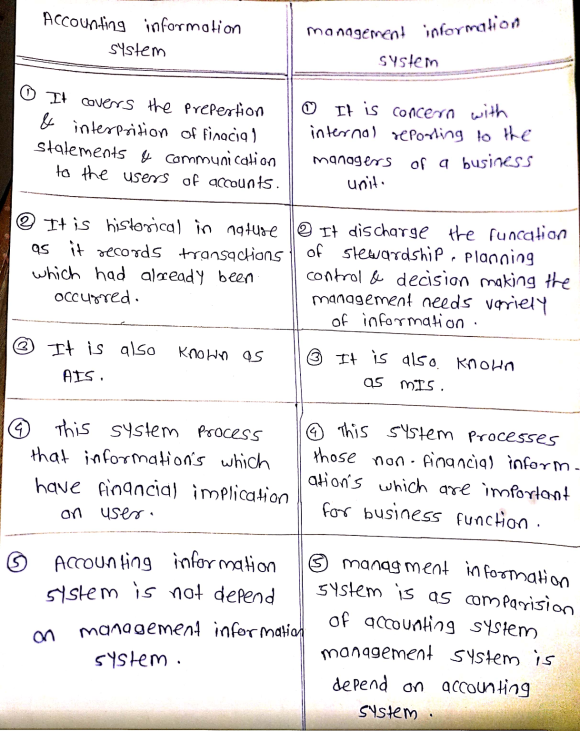 Accounting information
system
① It covers the prepertion
& interprition of finacial
statements & communication
to the users of accounts.
② It is historical in nature
as it records transactions
which had already been
occurred.
③ It is also known as
AIS.
④ This system process
that information's which
have financial implication
on user.
⑤ Accounting information
system is not depend
on management information
system.
management information
system
① It is concern with
internal reporting to the
managers of a business
unit.
② It discharge the funcation
of stewardship, planning
control & decision making the
management needs variely
of information.
③ It is also known
as MIS.
④ This system processes
those non-financial inform-
ation's which are important
for business function.
⑤ managment information
system is as comparision
of accounting system
management system is
depend on accounting
system.